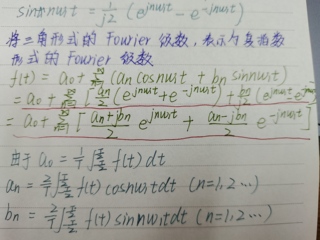 sin nω₁t = 1/j2 (e^jnω₁t - e^-jnω₁t)
将三角形式的 Fourier 级数,表示为复指数
形式的 Fourier 级数
f(t) = a₀ + ∞∑n=1 (an cosnω₁t + bn sinnω₁t)
= a₀ + ∞∑n=1 [an/2 (e^jnω₁t + e^-jnω₁t) + bn/2j (e^jnω₁t
= a₀ + ∞∑n=1 [an+jbn/2 e^jnω₁t + an-jbn/2 e^-jnω₁t]
由于 a₀ = 1/T ∫ f(t) dt
an = 2/T ∫ f(t) cosnω₁tdt (n=1,2…)
bn = 2/T ∫ f(t) sinnω₁tdt (n=1,2…)